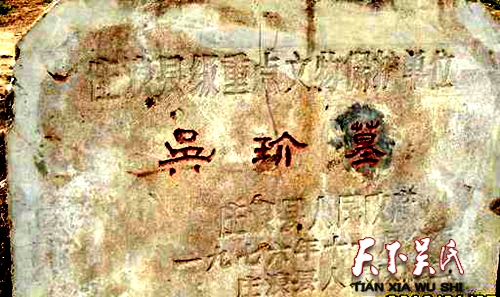 庄浪县级重点文物保护单位
吳玠墓
庄浪县人民政府
一九七六年十
庄浪县人
天下吴氏
TIAN XIA WU SHI